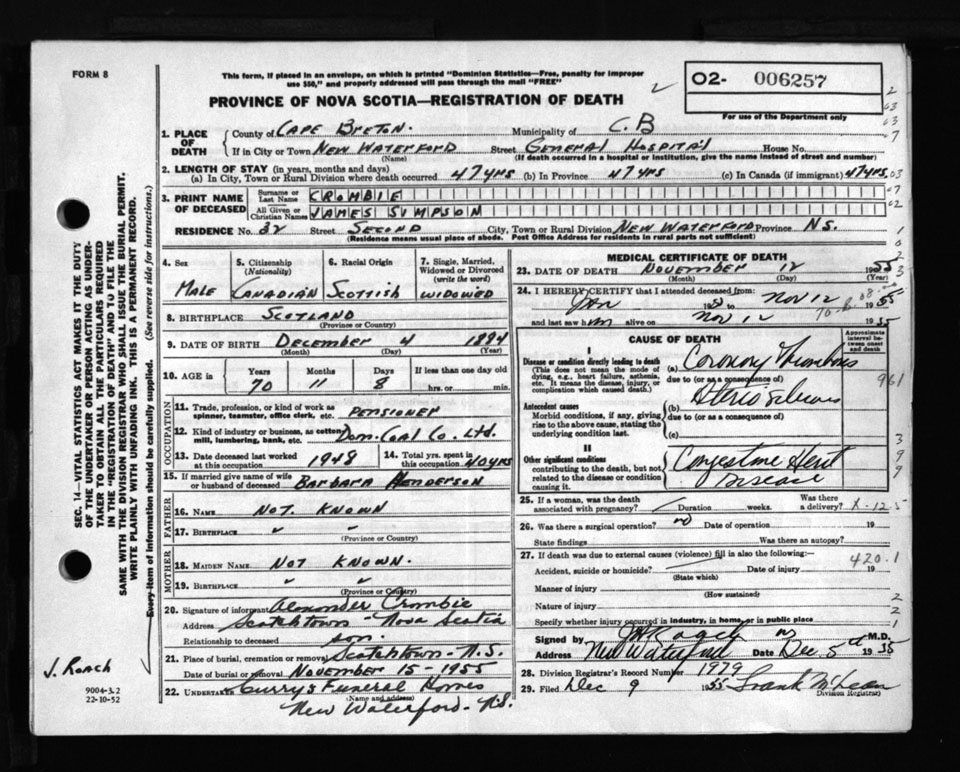 FORM 8
This form, if placed in an envelope, on which is printed "Dominion Statistics—Free, penalty for improper
use $50," and properly addressed will pass through the mail "FREE"
O2- 006257
For use of the Department only
PROVINCE OF NOVA SCOTIA—REGISTRATION OF DEATH
1. PLACE OF DEATH
County of CAPE BRETON. Municipality of C.B
If in City or Town NEW WATERFORD Street GENERAL HOSPITAL House No.
(Name) (If death occurred in a hospital or institution, give the name instead of street and number)
2. LENGTH OF STAY (in years, months and days)
(a) In City, Town or Rural Division where death occurred 47 yrs (b) In Province 47 yrs (c) In Canada (if immigrant) 47 yrs
3. PRINT NAME OF DECEASED
Surname or Last Name CROMBIE
All Given or Christian Names JAMES SIMPSON
RESIDENCE No. 32 Street SECOND City, Town or Rural Division NEW WATERFORD Province N.S.
(Residence means usual place of abode. Post Office Address for residents in rural parts not sufficient)
4. Sex
5. Citizenship (Nationality)
6. Racial Origin
7. Single, Married, Widowed or Divorced (write the word)
MALE CANADIAN SCOTTISH WIDOWED
8. BIRTHPLACE SCOTLAND
(Province or Country)
9. DATE OF BIRTH DECEMBER 4 1884
(Month) (Day) (Year)
10. AGE in Years Months Days If less than one day
70 11 8 hrs. or min.
OCCUPATION
11. Trade, profession, or kind of work as spinner, teamster, office clerk, etc. PENSIONER
12. Kind of industry or business, as cotton mill, lumbering, bank, etc. Dom. Coal Co. Ltd.
13. Date deceased last worked at this occupation 1948
14. Total yrs. spent in this occupation 40 yrs
15. If married give name of wife or husband of deceased BARBARA HENDERSON
FATHER
16. NAME NOT KNOWN
17. BIRTHPLACE " "
(Province or Country)
MOTHER
18. MAIDEN NAME NOT KNOWN.
19. BIRTHPLACE " "
(Province or Country)
20. Signature of informant Alexander Crombie
Address Scotchtown - Nova Scotia
Relationship to deceased son.
21. Place of burial, cremation or removal Scotchtown - N.S.
Date of burial or removal NOVEMBER 15 - 1955
22. UNDERTAKER Curry's Funeral Homes
(Name and address)
New Waterford - N.S.
MEDICAL CERTIFICATE OF DEATH
23. DATE OF DEATH NOVEMBER 12 1955
(Month) (Day) (Year)
24. I HEREBY CERTIFY that I attended deceased from
Jan to Nov 12 1955
and last saw him alive on Nov 12 1955
CAUSE OF DEATH
Approximate interval between onset and death
I
Disease or condition directly leading to death
(This does not mean the mode of dying, e.g., heart failure, asthenia, etc. It means the disease, injury, or complication which caused death.)
(a) Coronary Thrombosis
due to (or as a consequence of)
Antecedent causes
Morbid conditions, if any, giving rise to the above cause, stating the underlying condition last.
(b)
due to (or as a consequence of)
(c)
II
Other significant conditions
contributing to the death, but not related to the disease or condition causing it.
Congestive Heart
Disease
25. If a woman, was the death associated with pregnancy? Duration weeks. Was there a delivery? X-12
26. Was there a surgical operation? no Date of operation 19
State findings Was there an autopsy?
27. If death was due to external causes (violence) fill in also the following:—
420.1
Accident, suicide or homicide? Date of injury 19
(State which)
Manner of injury
(How sustained)
Nature of injury
Specify whether injury occurred in industry, in home, or in public place
Signed by M.D.
Address New Waterford Date Dec 5 1955
28. Division Registrar's Record Number 1979
29. Filed Dec 9 1955 Frank McLean
Division Registrar
SEC. 14—VITAL STATISTICS ACT MAKES IT THE DUTY
OF THE UNDERTAKER OR PERSON ACTING AS UNDER-
TAKER TO OBTAIN ALL THE PARTICULARS REQUIRED
IN THE "REGISTRATION OF DEATH" AND TO FILE THE
SAME WITH THE DIVISION REGISTRAR WHO SHALL ISSUE THE BURIAL PERMIT.
WRITE PLAINLY WITH UNFADING INK. THIS IS A PERMANENT RECORD.
Every item of information should be carefully supplied. (See reverse side for instructions.)
J. ROACH
9004-3.2
22-10-52